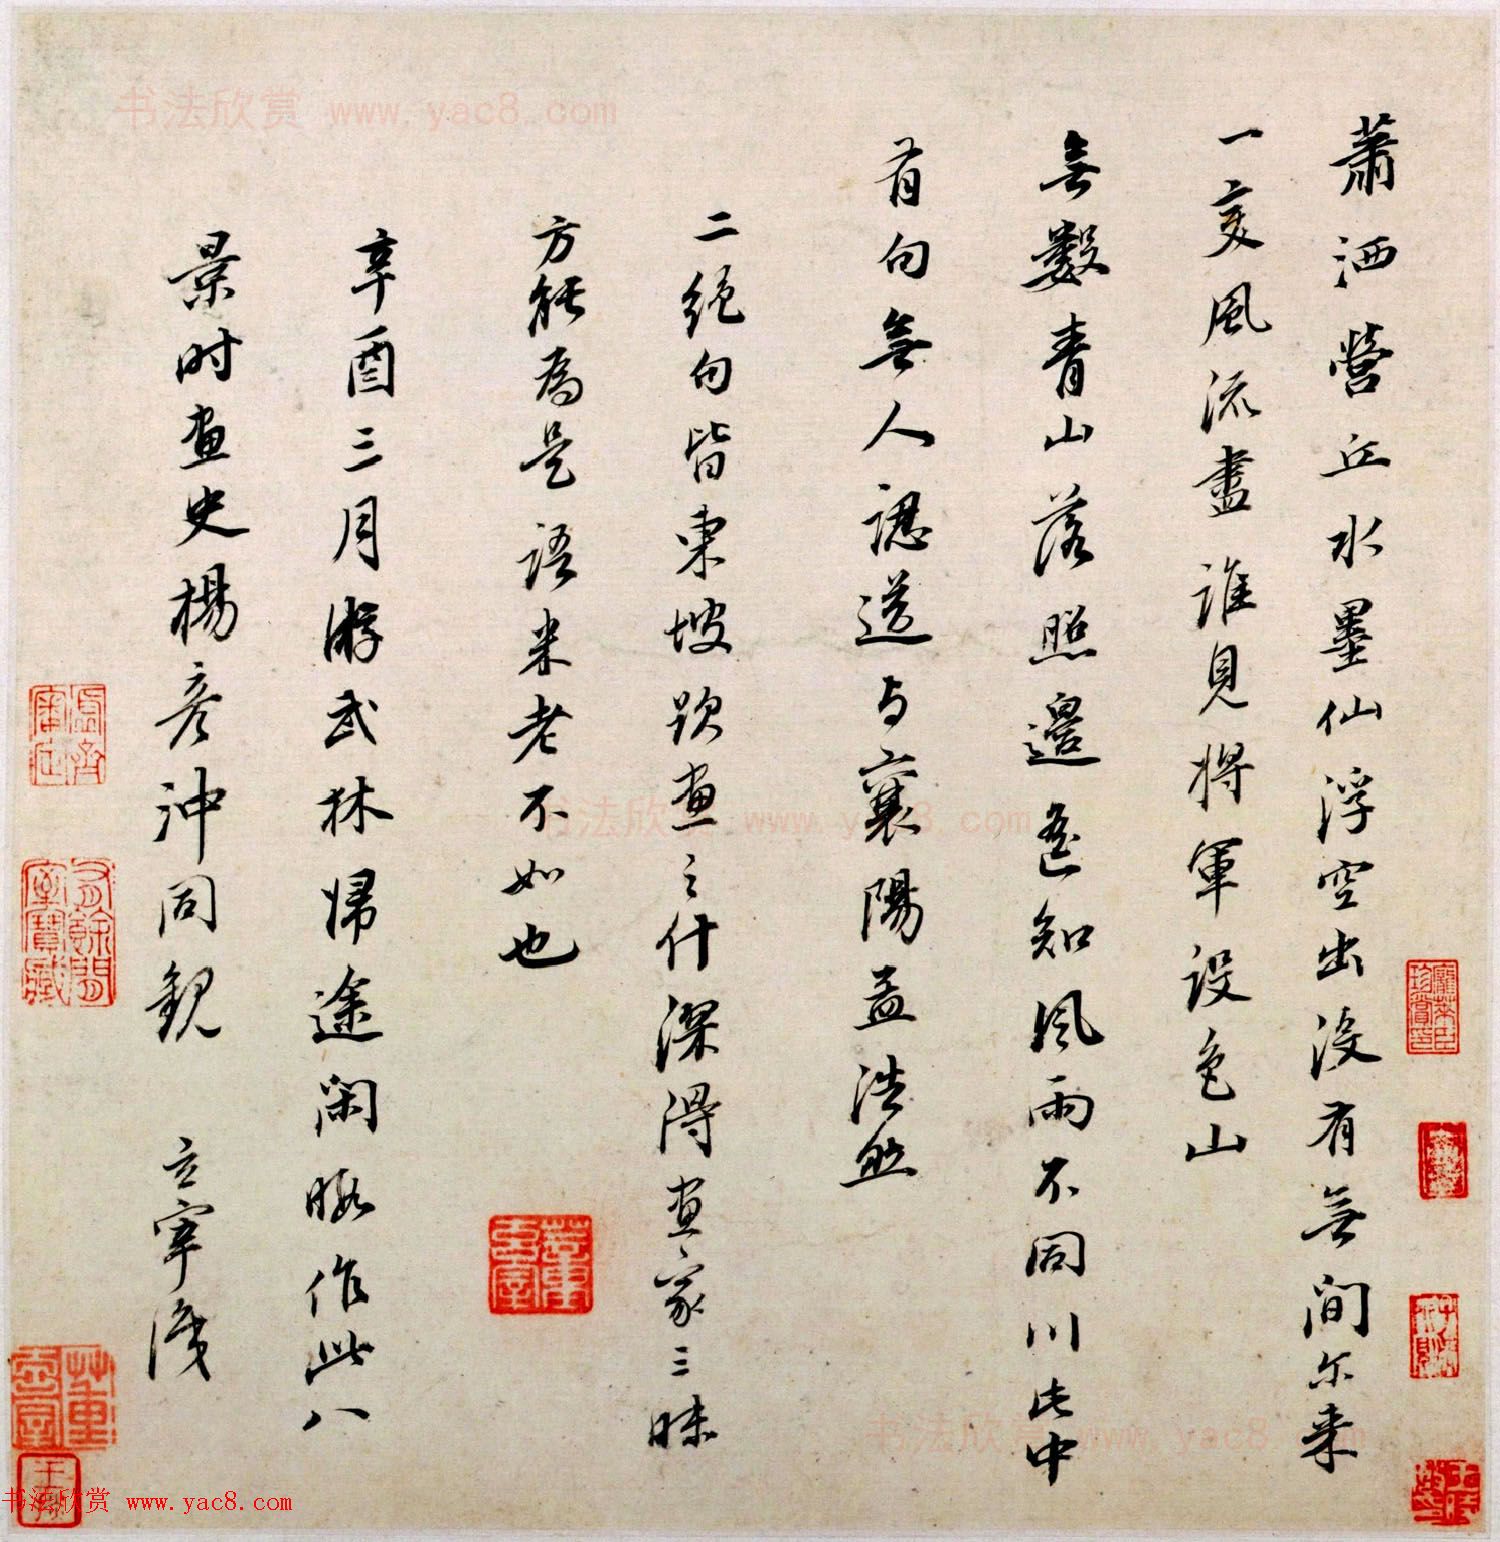 蕭洒營丘水墨仙浮空出沒有無間尔来
一変風流盡誰見将軍設色山
無數青山落照邊遙知風雨不同川此中
有句無人認送与襄陽孟浩然
二絕句皆東坡題画之什深得画家三昧
方能為是語米老不如也
辛酉三月游武林歸途閑暇作此八
景时画史楊彦沖同觀 玄宰識
书法欣赏 www.yac8.com
书法欣赏 www.yac8.com
书法欣赏 www.yac8.com
书法欣赏 www.yac8.com